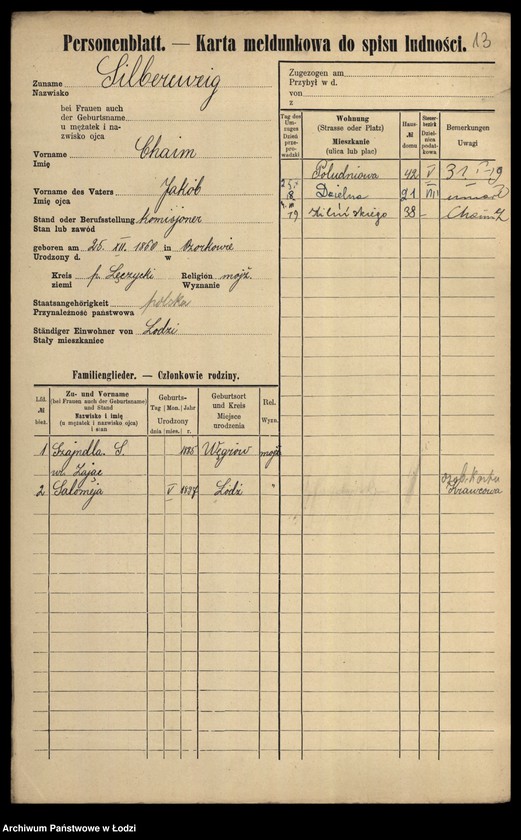 Personenblatt. — Karta meldunkowa do spisu ludności. 13
Zuname Silberzweig
Nazwisko
bei Frauen auch
der Geburtsname
u mężatek i na-
zwisko ojca
Vorname Chaim
Imię
Vorname des Vaters Jakób
Imię ojca
Stand oder Berufsstellung komisjoner
Stan lub zawód
geboren am 25. XII. 1860 in Ozorkowie
Urodzony d. w
Kreis p. Łęczycki Religion mojż.
ziemi Wyznanie
Staatsangehörigkeit polska
Przynależność państwowa
Ständiger Einwohner von Łodzi
Stały mieszkaniec
Familienglieder. — Członkowie rodziny.
Lfd. № bież.
Zu- und Vorname
(bei Frauen auch der Geburtsname)
und Stand
Nazwisko i imię
(u mężatek i nazwisko ojca)
i stan
Geburts-
Tag Mon. Jahr
Urodzony
dnia mies. r.
Geburtsort
und Kreis
Miejsce
urodzenia
Rel.
Wyzn.
1 Szajndla S. Węgrów mojż
Zając
2 Salomeja V Łódź "
Zugezogen am
Przybył w d.
von
z
Tag des
Um-
zuges
Dzień
prze-
prowadzki
Wohnung
(Strasse oder Platz)
Mieszkanie
(ulica lub plac)
Haus-
№
domu
Steuer-
bezirk
Dziel-
nica
podat-
kowa
Bemerkungen
Uwagi
Południowa 42 V
Dzielna 91 VII umarł
19 Kilińskiego 38 - Chaim
Krawcowa
Archiwum Państwowe w Łodzi